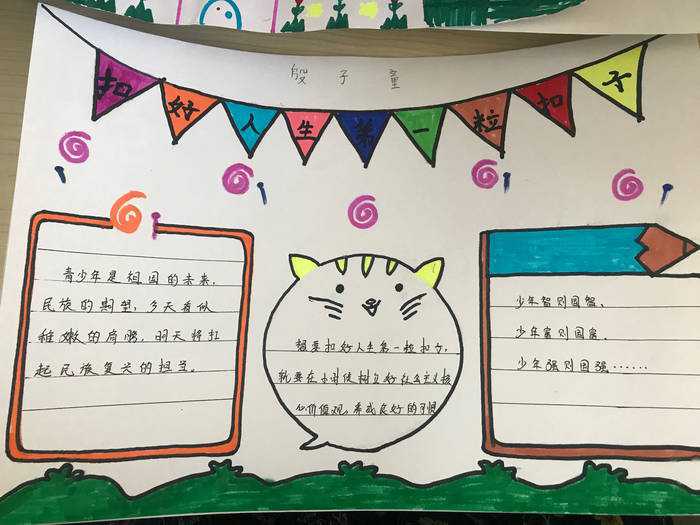 殷子童
扣好人生第一粒扣子
青少年是祖国的未来,
民族的期望,今天看似
稚嫩的肩膀,明天将扛
起民族复兴的担当。
想要扣好人生第一粒扣子,
就要在小时候树立好社会主义核
心价值观,养成良好的习惯
少年智则国智、
少年富则国富、
少年强则国强……